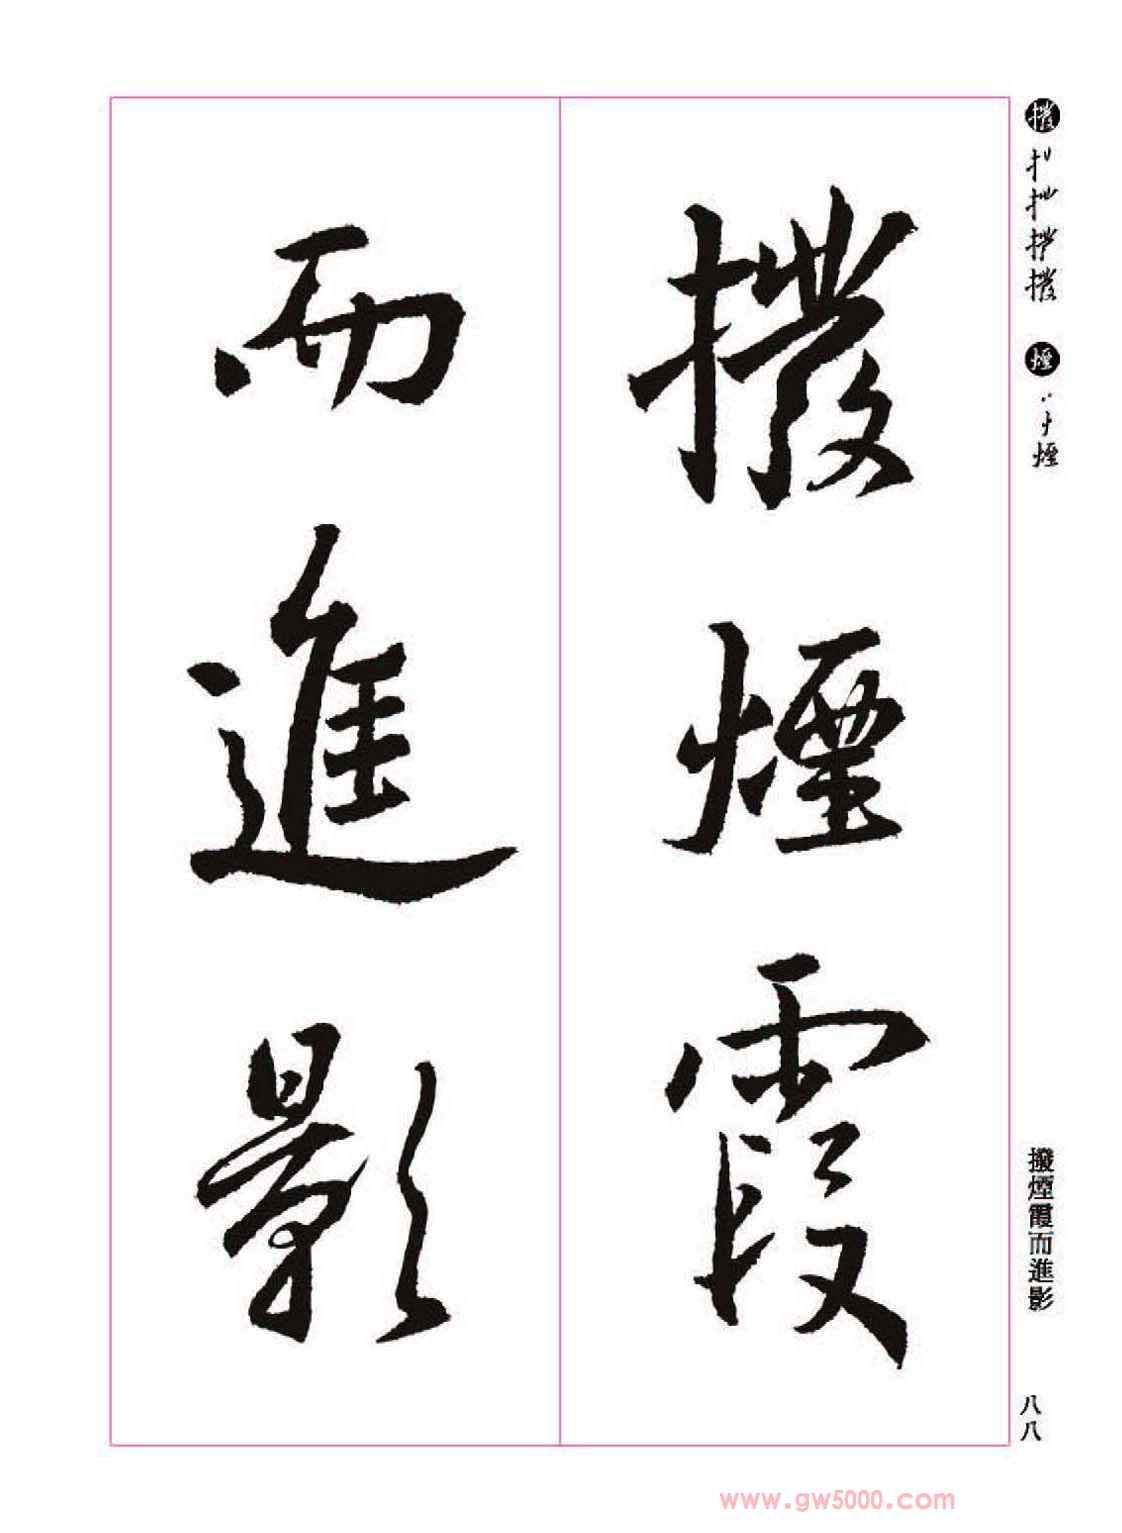 撥 撥 煙 煙
撥煙霞
而進影
撥煙霞而進影
八八
www.gw5000.com